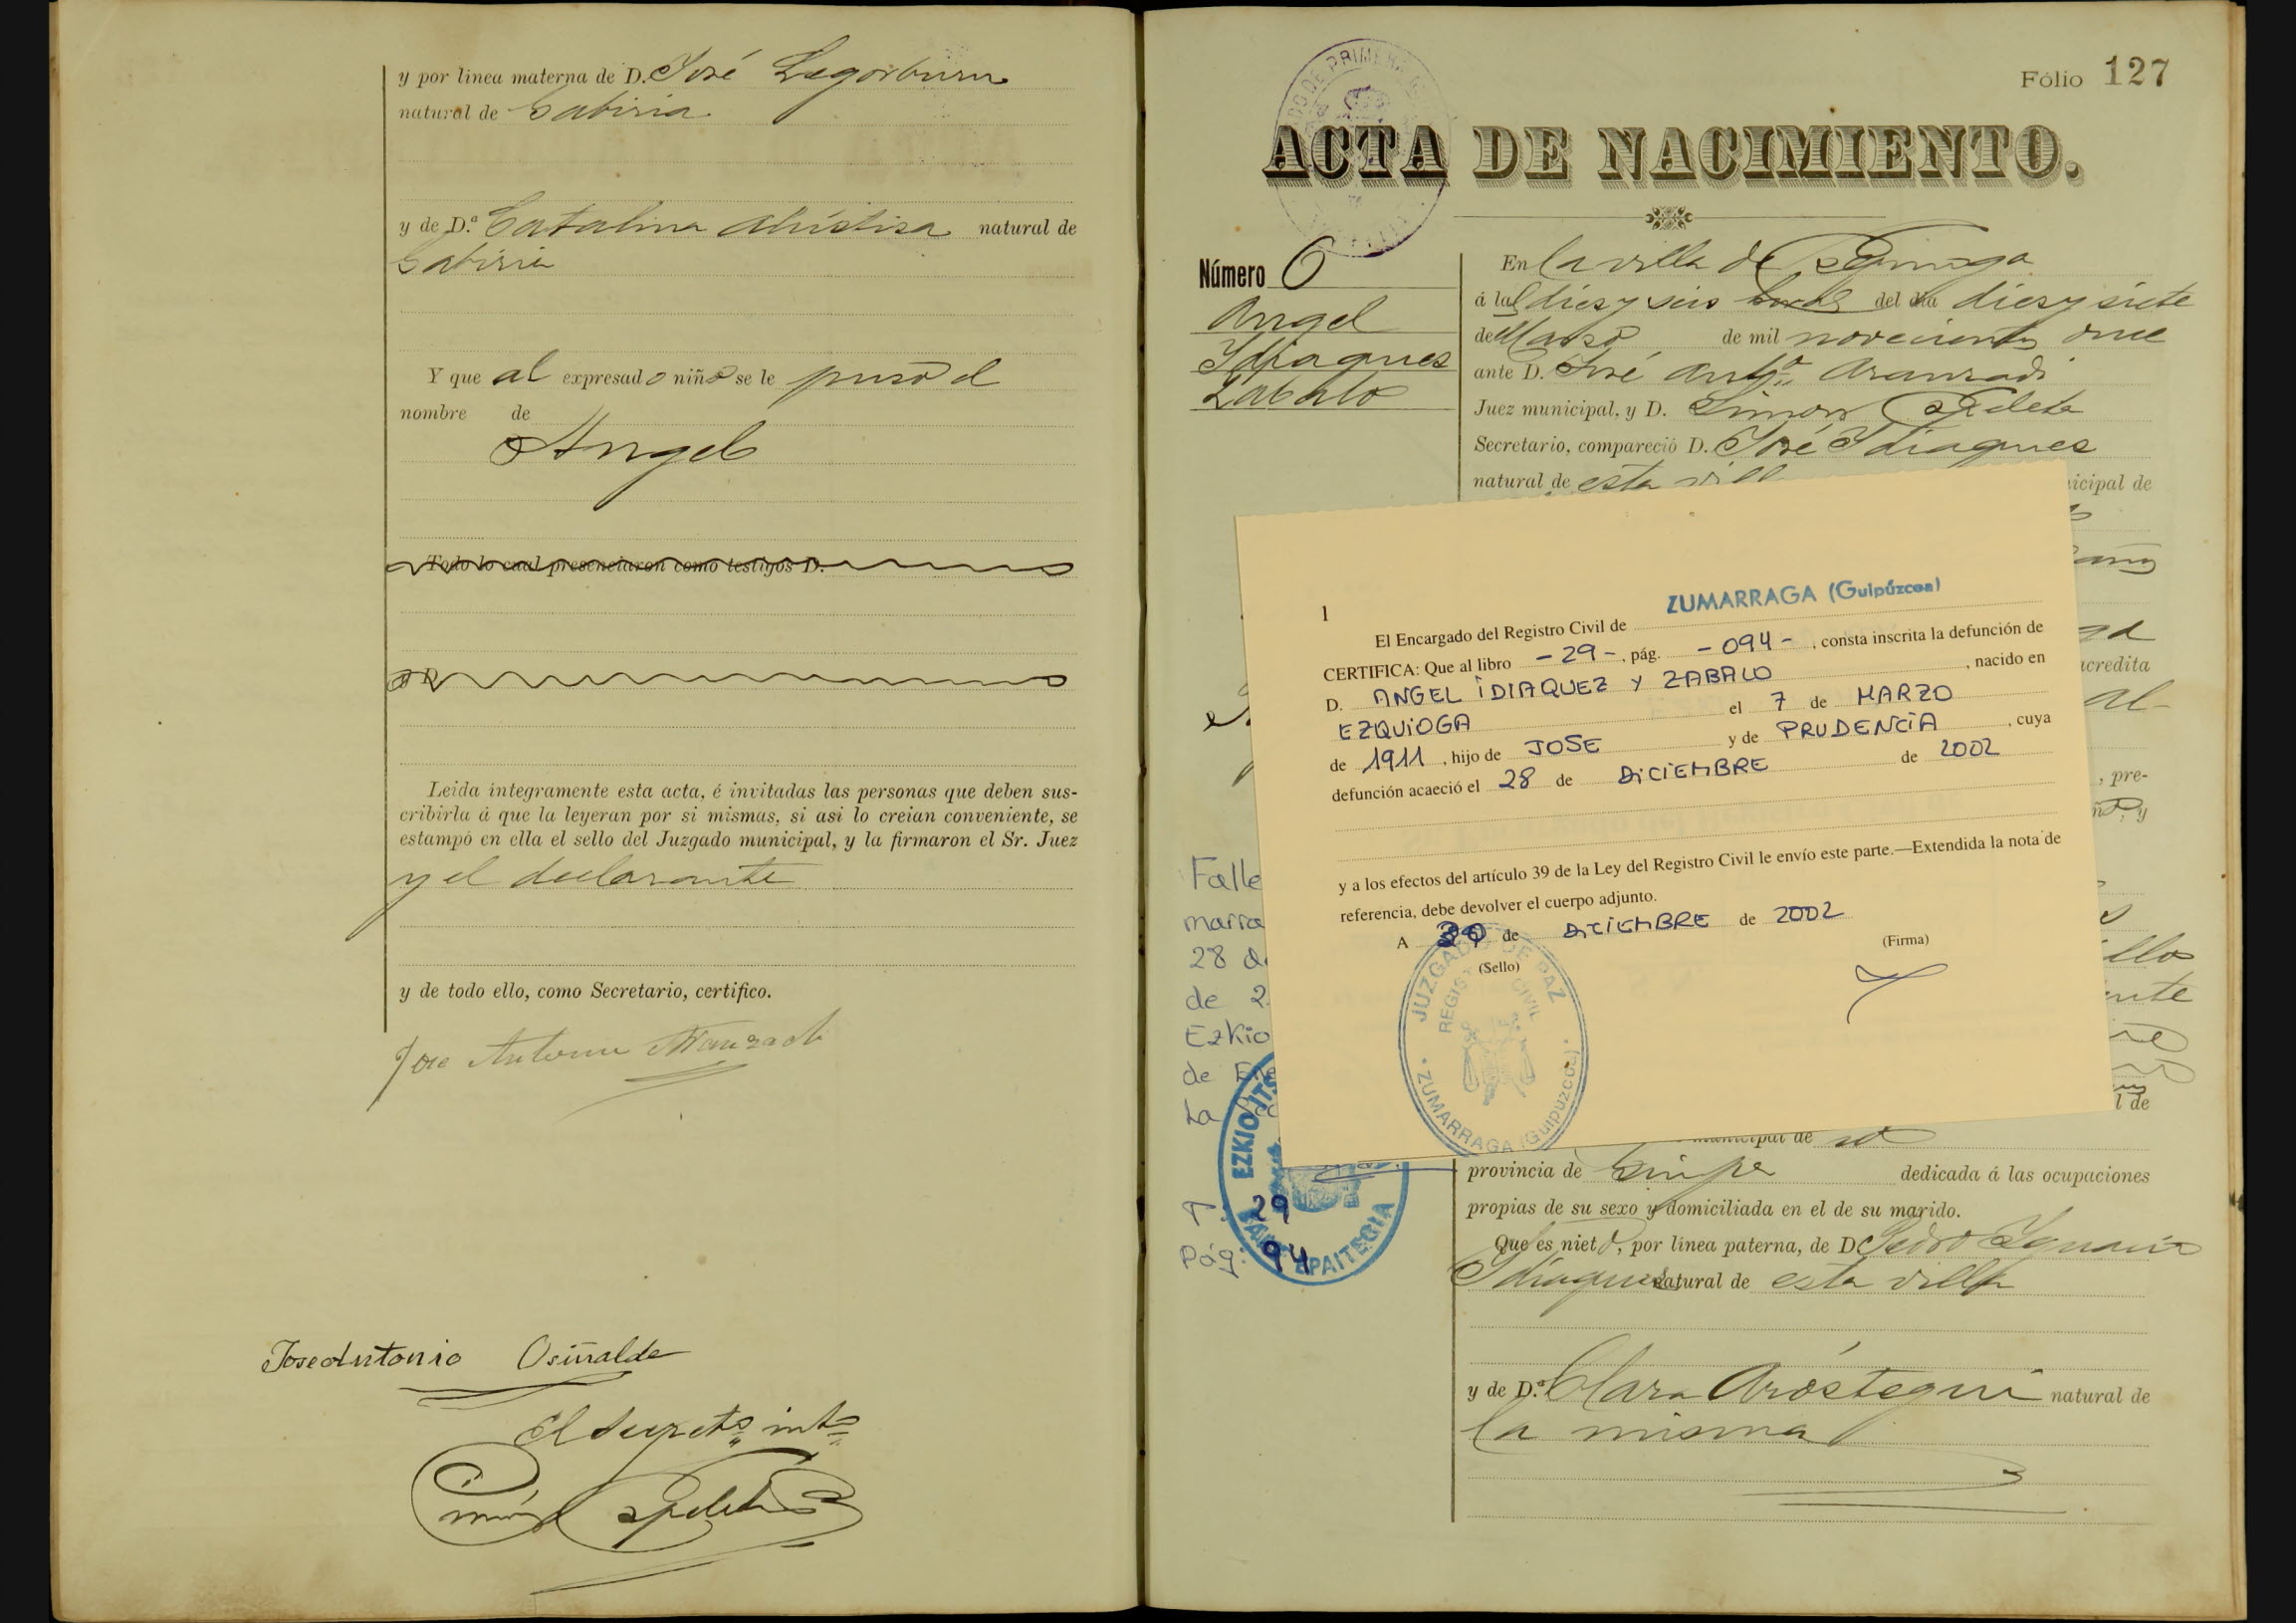 y por linea materna de D. José Legorburu
natural de Gabiria
y de D.ª Catalina Alústiza natural de
Gabiria
Y que al expresado niño se le puso el
nombre de
Angel
Todo lo cual presenciaron como testigos D.
Leida integramente esta acta, é invitadas las personas que deben sus-
cribirla á que la leyeran por si mismas, si asi lo creian conveniente, se
estampó en ella el sello del Juzgado municipal, y la firmaron el Sr. Juez
y el declarante
y de todo ello, como Secretario, certifico.
Jose Antonio Aranzadi
Jose Antonio Osiñalde
El Secret.º int.º
Simón Apeleta
Fólio 127
ACTA DE NACIMIENTO.
Número 6
Angel
Idiaques
Zabalo
En la villa de Ezquioga
á las dies y seis horas del dia dies y siete
de Marso de mil novecientos once
ante D. José Ant.º Aranzadi
Juez municipal, y D. Simon Apeleta
Secretario, compareció D. José Idiaques
natural de esta vill
icipal de
años
credita
al-
, pre-
y
llos
ente
l de
1
ZUMARRAGA (Guipúzcoa)
El Encargado del Registro Civil de
CERTIFICA: Que al libro -29-, pág. -094-, consta inscrita la defunción de
D. ANGEL IDIAQUEZ Y ZABALO, nacido en
EZQUIOGA el 7 de MARZO
de 1911, hijo de JOSE y de PRUDENCIA, cuya
defunción acaeció el 28 de DICIEMBRE de 2002
y a los efectos del artículo 39 de la Ley del Registro Civil le envío este parte.—Extendida la nota de
referencia, debe devolver el cuerpo adjunto.
A 30 de DICIEMBRE de 2002
(Sello)
(Firma)
JUZGADO DE PAZ
REGISTRO CIVIL
ZUMARRAGA (Guipúzcoa)
Falle
marra
28 d
de 2
Ezkio
de En
La
EZKIO ITS
BAKE EPAITEGIA
T. 29
Pág: 94
municipal de id
provincia de Guip.ª dedicada á las ocupaciones
propias de su sexo y domiciliada en el de su marido.
Que es nieto, por linea paterna, de D. Pedro Ygnacio
Idiaques natural de esta villa
y de D.ª Clara Aróstegui natural de
la misma